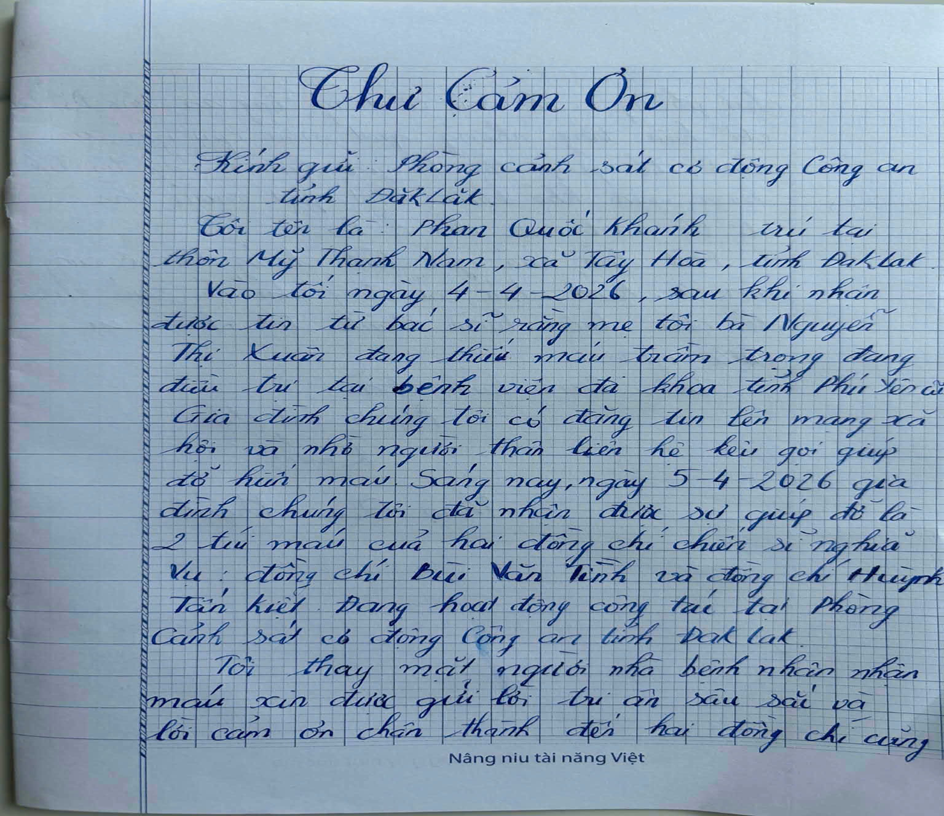 Thư Cảm Ơn
Kính gửi: Phòng cảnh sát cơ động Công an
tỉnh ĐắkLắk.
Tôi tên là: Phan Quốc Khánh trú tại
thôn Mỹ Thạnh Nam, xã Tây Hoà, tỉnh ĐakLak.
Vào tối ngày 4-4-2026, sau khi nhận
được tin từ bác sĩ rằng mẹ tôi bà Nguyễn
Thị Xuân đang thiếu máu trầm trọng đang
điều trị tại bệnh viện đa khoa tỉnh Phú Yên cũ
Gia đình chúng tôi có đăng tin lên mạng xã
hội và nhờ người thân liên hệ kêu gọi giúp
đỡ hiến máu. Sáng nay, ngày 5-4-2026 gia
đình chúng tôi đã nhận được sự giúp đỡ là
2 túi máu của hai đồng chí chiến sĩ nghĩa
Vụ: đồng chí Bùi Văn Tình và đồng chí Huỳnh
Tấn Kiệt. Đang hoạt động công tác tại Phòng
Cảnh sát cơ động Công an tỉnh Đak lak.
Tôi thay mặt người nhà bệnh nhân nhận
máu xin được gửi lời tri ân sâu sắc và
lời cảm ơn chân thành đến hai đồng chí cũng
Nâng niu tài năng Việt